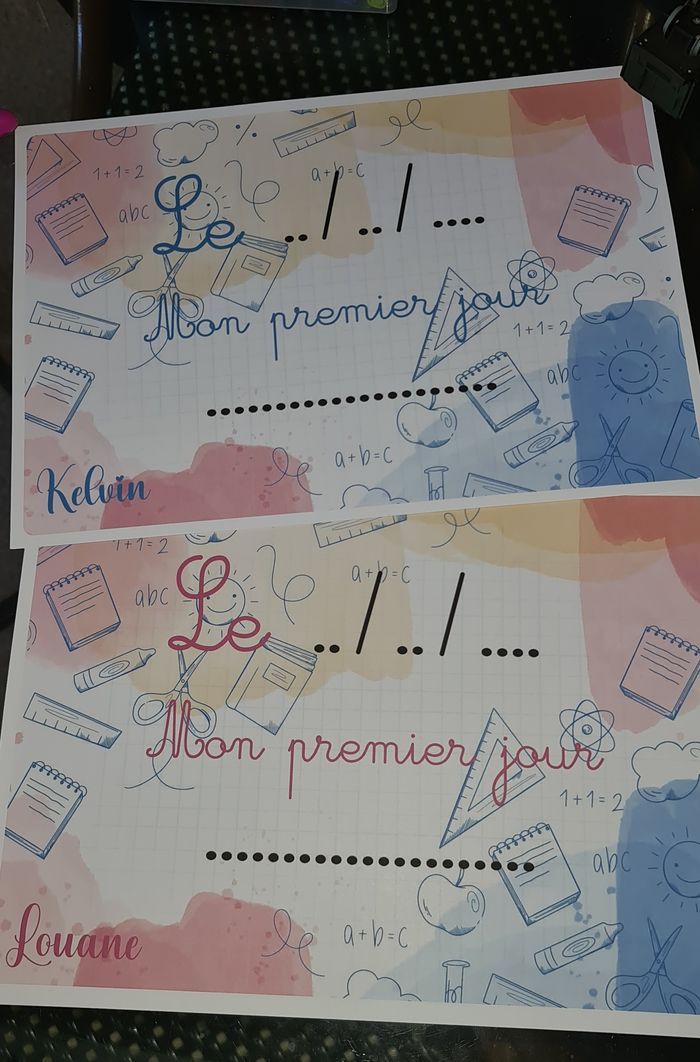 1+1=2
a+b=c
abc
Le ../../....
Mon premier jour
1+1=2
abc
.....................
a+b=c
Kelvin
1+1=2
a+b=c
abc
Le ../../....
Mon premier jour
1+1=2
abc
.....................
a+b=c
Louane